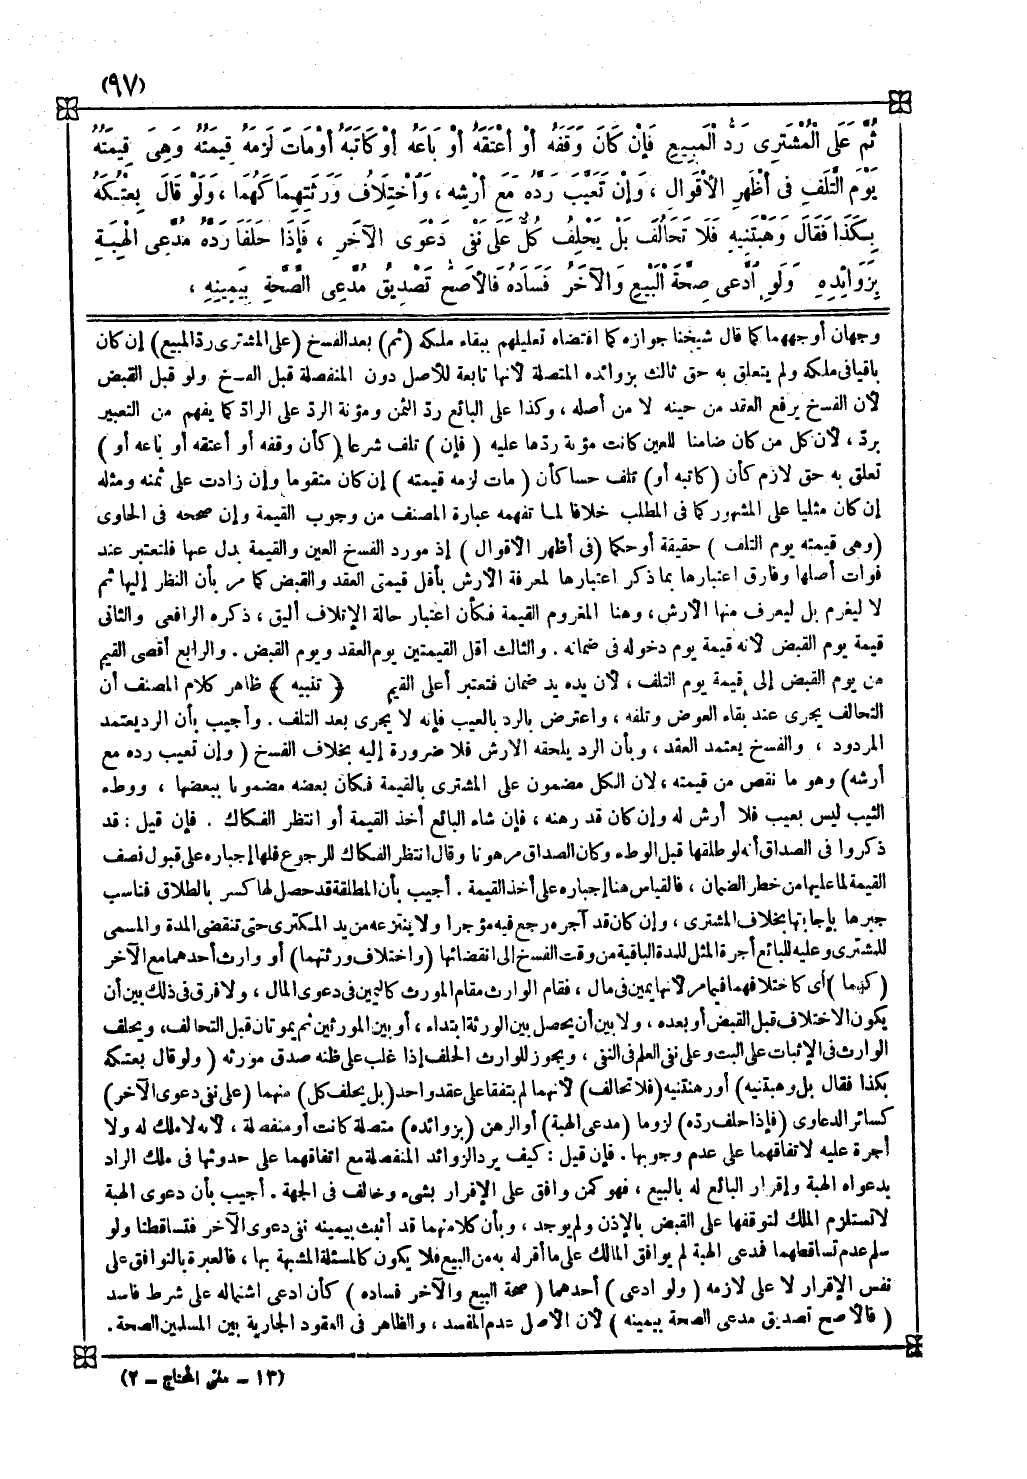 (٩٧)
ثُمَّ عَلَى الْمُشْتَرِى رَدُّ الْمَبِيعِ فَإِنْ كَانَ وَقَفَهُ أَوْ أَعْتَقَهُ أَوْ بَاعَهُ أَوْ كَاتَبَهُ أَوْ مَاتَ لَزِمَهُ قِيمَتُهُ وَهِىَ قِيمَتُهُ
يَوْمَ التَّلَفِ فِى أَظْهَرِ الْأَقْوَالِ ، وَإِنْ تَعَيَّبَ رَدَّهُ مَعَ أَرْشِهِ ، وَاخْتِلَافُ وَرَثَتِهِمَا كَهُمَا ، وَلَوْ قَالَ بِعْتُكَهُ
بِكَذَا فَقَالَ وَهَبْتَنِيهِ فَلَا تَحَالُفَ بَلْ يَحْلِفُ كُلٌّ عَلَى نَفْىِ دَعْوَى الْآخَرِ ، فَإِذَا حَلَفَا رَدَّهُ مُدَّعِى الْهِبَةِ
بِزَوَائِدِهِ وَلَوِ ادَّعَى صِحَّةَ الْبَيْعِ وَالْآخَرُ فَسَادَهُ فَالْأَصَحُّ تَصْدِيقُ مُدَّعِى الصِّحَّةِ بِيَمِينِهِ ،
وجهان أوجههما كما قال شيخنا جوازه كما اقتضاه تعليلهم ببقاء ملكه (ثم) بعد الفسخ (على المشترى ردّ المبيع) إن كان
باقيا فى ملكه ولم يتعلق به حق ثالث بزوائده المتصلة لأنها تابعة للأصل دون المنفصلة قبل الفسخ ولو قبل القبض
لأن الفسخ يرفع العقد من حينه لا من أصله ، وكذا على البائع ردّ الثمن ومؤنة الردّ على الرادّ كما يفهم من التعبير
بردّ ، لأن كل من كان ضامنا للعين كانت مؤنة ردّها عليه (فإن) تلف شرعا (كأن وقفه أو أعتقه أو باعه أو)
تعلق به حق لازم كأن (كاتبه أو) تلف حسا كأن (مات لزمه قيمته) إن كان متقوما وإن زادت على ثمنه ومثله
إن كان مثليا على المشهور كما فى المطلب خلافا لما تفهمه عبارة المصنف من وجوب القيمة وإن صححه فى الحاوى
(وهى قيمته يوم التلف) حقيقة أو حكما (فى أظهر الأقوال) إذ مورد الفسخ العين والقيمة بدل عنها فلتعتبر عند
فوات أصلها وفارق اعتبارها بما ذكر اعتبارها لمعرفة الأرش بأقل قيمتى العقد والقبض كما مر بأن النظر إليها ثم
لا ليغرم بل ليعرف منها الأرش ، وهنا المغروم القيمة فكأن اعتبار حالة الإتلاف أليق ، ذكره الرافعى والثانى
قيمة يوم القبض لأنه قيمة يوم دخوله فى ضمانه . والثالث أقل القيمتين يوم العقد ويوم القبض . والرابع أقصى القيم
من يوم القبض إلى قيمة يوم التلف ، لأن يده يد ضمان فتعتبر أعلى القيم ﴿ تنبيه ﴾ ظاهر كلام المصنف أن
التحالف يجرى عند بقاء العوض وتلفه ، واعترض بالرد بالعيب فإنه لا يجرى بعد التلف . وأجيب بأن الرد يعتمد
المردود ، والفسخ يعتمد العقد ، وبأن الرد يلحقه الأرش فلا ضرورة إليه بخلاف الفسخ (وإن تعيب رده مع
أرشه) وهو ما نقص من قيمته ، لأن الكل مضمون على المشترى بالقيمة فكان بعضه مضمونا ببعضها ، ووطء
الثيب ليس بعيب فلا أرش له وإن كان قد رهنه ، فإن شاء البائع أخذ القيمة أو انتظر الفكاك . فإن قيل : قد
ذكروا فى الصداق أنه لو طلقها قبل الوطء وكان الصداق مرهونا وقال انتظر الفكاك للرجوع فلها إجباره على قبول نصف
القيمة لما عليها من خطر الضمان ، فالقياس هنا إجباره على أخذ القيمة . أجيب بأن المطلقة قد حصل لها كسر بالطلاق فناسب
جبرها بإجابتها بخلاف المشترى ، وإن كان قد آجره رجع فيه مؤجرا ولا ينتزعه من يد المكترى حتى تنقضى المدة والمسمى
للمشترى وعليه للبائع أجرة المثل للمدة الباقية من وقت الفسخ إلى انقضائها (واختلاف ورثتهما) أو وارث أحدهما مع الآخر
(كهما) أى كاختلافهما فيما مر لأنها يمين فى مال ، فقام الوارث مقام المورث كاليمين فى دعوى المال ، ولا فرق فى ذلك بين أن
يكون الاختلاف قبل القبض أو بعده ، ولا بين أن يحصل بين الورثة ابتداء ، أو بين المورثين ثم يموتان قبل التحالف ، ويحلف
الوارث فى الإثبات على البت وعلى نفى العلم فى النفى ، ويجوز للوارث الحلف إذا غلب على ظنه صدق مورثه (ولو قال بعتكه
بكذا فقال بل وهبتنيه) أو رهنتنيه (فلا تحالف) لأنهما لم يتفقا على عقد واحد (بل يحلف كل) منهما (على نفى دعوى الآخر)
كسائر الدعاوى (فإذا حلف رده) لزوما (مدعى الهبة) أو الرهن (بزوائده) متصلة كانت أو منفصلة ، لأنه لا ملك له ولا
أجرة عليه لاتفاقهما على عدم وجوبها . فإن قيل : كيف يرد الزوائد المنفصلة مع اتفاقهما على حدوثها فى ملك الراد
بدعواه الهبة وإقرار البائع له بالبيع ، فهو كمن وافق على الإقرار بشىء وخالف فى الجهة . أجيب بأن دعوى الهبة
لا تستلزم الملك لتوقفها على القبض بالإذن ولم يوجد ، وبأن كلا منهما قد أثبت بيمينه نفى دعوى الآخر فتساقطتا ولو
سلم عدم تساقطهما فمدعى الهبة لم يوافق المالك على ما أقر له به من البيع فلا يكون كالمسئلة المشبهة بها ، فالعبرة بالتوافق على
نفس الإقرار لا على لازمه (ولو ادعى) أحدهما (صحة البيع والآخر فساده) كأن ادعى اشتماله على شرط فاسد
(فالأصح تصديق مدعى الصحة بيمينه) لأن الأصل عدم المفسد ، والظاهر فى العقود الجارية بين المسلمين الصحة .
(١٣ - مغنى المحتاج - ٢)